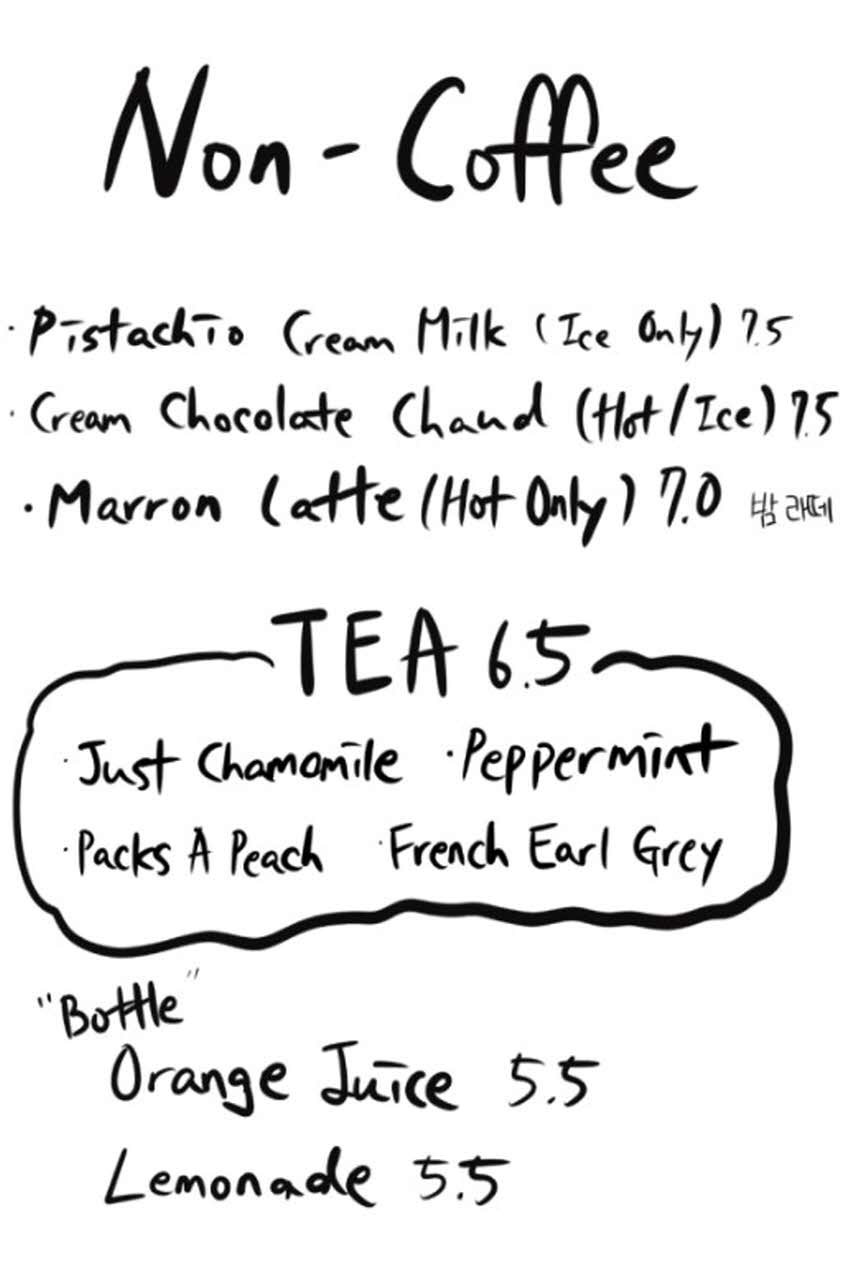 Non-Coffee
· Pistachio Cream Milk (Ice Only) 7.5
· Cream Chocolate Chaud (Hot/Ice) 7.5
· Marron Latte (Hot Only) 7.0 밤 라떼
TEA 6.5
· Just Chamomile · Peppermint
· Packs A Peach · French Earl Grey
"Bottle"
Orange Juice 5.5
Lemonade 5.5